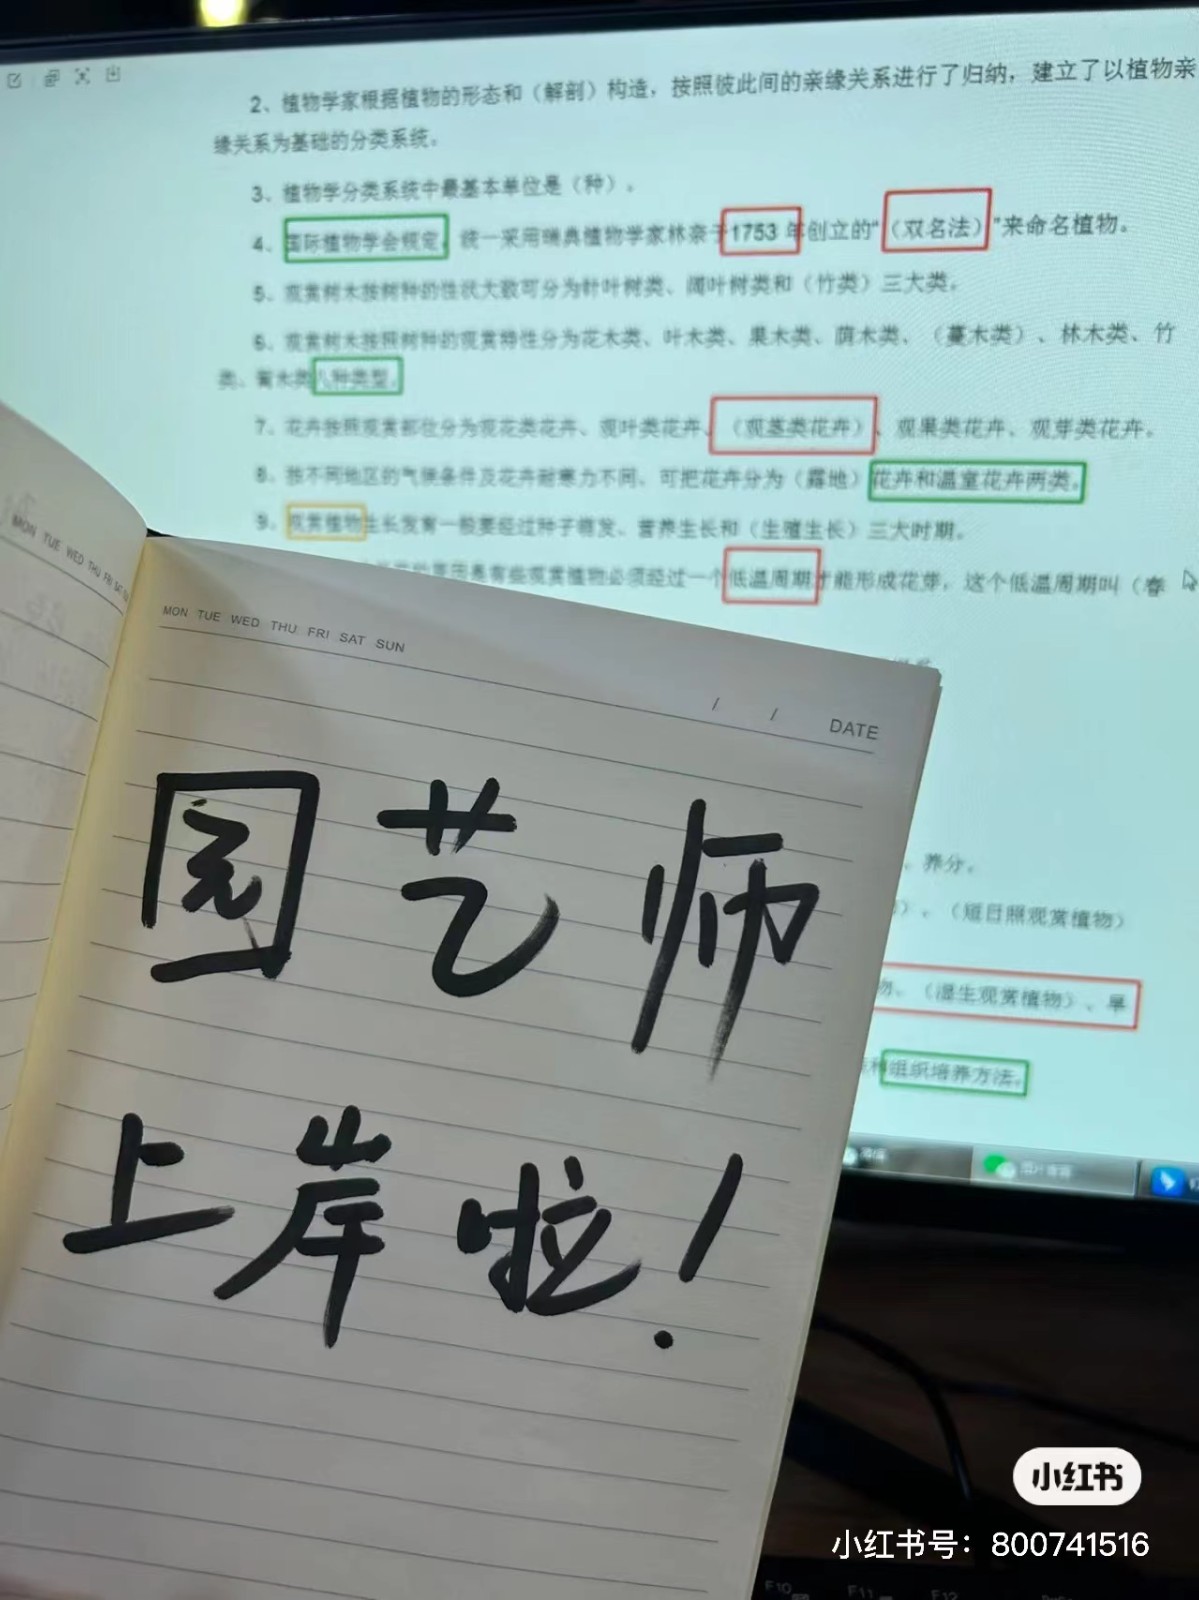 2、植物学家根据植物的形态和（解剖）构造，按照彼此间的亲缘关系进行了归纳，建立了以植物亲
缘关系为基础的分类系统。
3、植物学分类系统中最基本单位是（种）。
4、国际植物学会规定，统一采用瑞典植物学家林奈于1753 年创立的“（双名法）”来命名植物。
5、观赏树木按树种的性状大致可分为针叶树类、阔叶树类和（竹类）三大类。
6、观赏树木按照树种的观赏特性分为花木类、叶木类、果木类、荫木类、（蔓木类）、林木类、竹
类、篱木类八种类型。
7、花卉按照观赏部位分为观花类花卉、观叶类花卉、（观茎类花卉）、观果类花卉、观芽类花卉。
8、按不同地区的气候条件及花卉耐寒力不同、可把花卉分为（露地）花卉和温室花卉两类。
9、观赏植物生长发育一般要经过种子萌发、营养生长和（生殖生长）三大时期。
是有些观赏植物必须经过一个低温周期才能形成花芽，这个低温周期叫（春
、养分。
）、（短日照观赏植物）
物、（湿生观赏植物）、旱
组织培养方法。
MON TUE WED THU FRI SAT
MON TUE WED THU FRI SAT SUN
/ / DATE
园艺师
上岸啦！
小红书
小红书号：800741516
F10 F11 F12